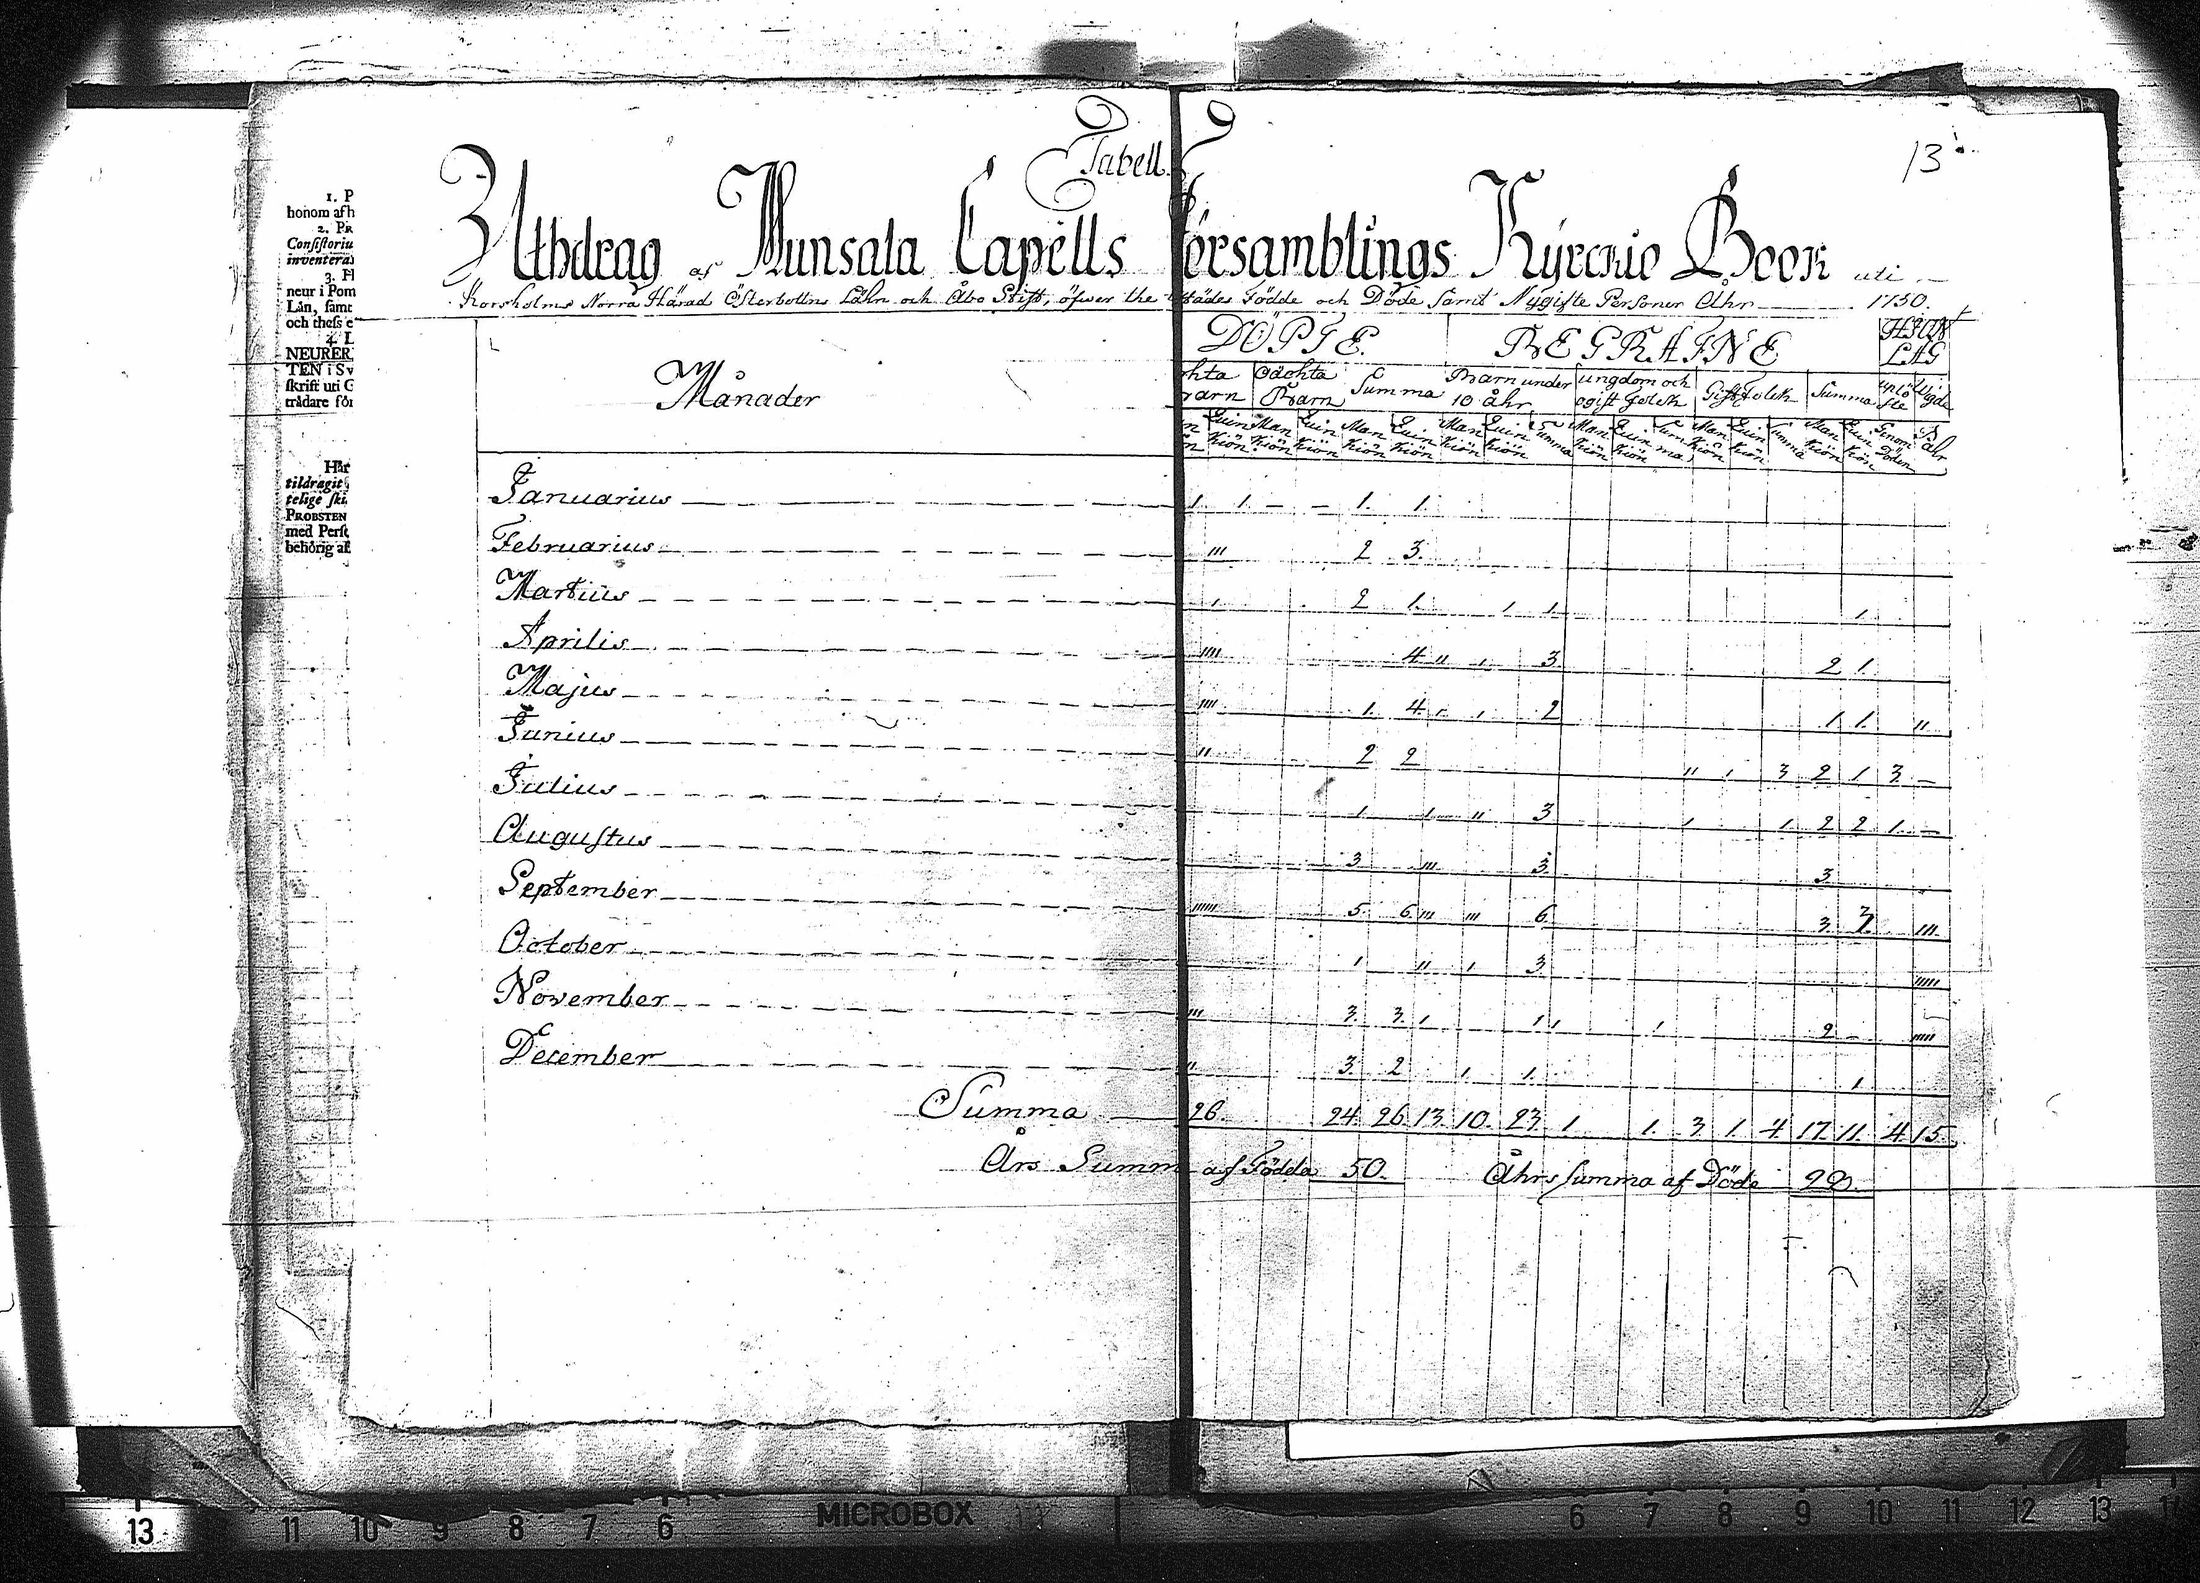 Tabell
13
Uthdrag af Munsala Capells Församblings Kyrckio Book uti
Korsholms Norra Härad Österbottns Lähn och Åbo Stift, öfwer the Födde och Döde samt Nygifte Personer Åhr 1750.
1. P
honom afh
2. PR
Consistoriu
inventera
3. H
neur i Pom
Län, samt
och thess e
4. L
NEURER
TEN i Sv
skrift uti G
trädare för
Här
tildragit
telige ski
PROBSTEN
med Perso
behörig af
Månader
DÖPTE. BEGRAFNE HION LAG
chta Oächta Summa Barn under ungdom och Gift Folck Summa uplö wigde
Barn Barn 10 åhr ogift Folck ste
Quin Man Quin Man Quin Man Quin Summa Man Quin Summa Man Quin Summa Man Quin Genom
Kiön Kiön Kiön Kiön Kiön Kiön Kiön Kiön Kiön Kiön Kiön Kiön Kiön Döden
Januarius 1. 1. 1. 1.
Februarius ''' 2 3.
Martius 1 2 1. 1 1. 1
Aprilis '''' 4 '' 1 3 2 1.
Majus '''' 1. 4. 1. 1 2 1 1. ''
Junius '' 2 2 '' 1 3 2 1 3
Julius 1 1 '' 3 1 1 2 2 1.
Augustus 3 ''' 3. 3
September ''''' 5. 6. ''' ''' 6. 3. 3. '''
October 1 '' 1 3 '''''
November ''' 3. 3. 1 1 1 1 2 '''''
December '' 3. 2 1 1. 1
Summa 26. 24. 26. 13. 10. 23. 1. 1. 3. 1. 4. 17. 11. 4 15.
Års Summa af Födda 50. Åhrs summa af Döde 28.
MICROBOX
13 11 10 9 8 7 6 6 7 8 9 10 11 12 13